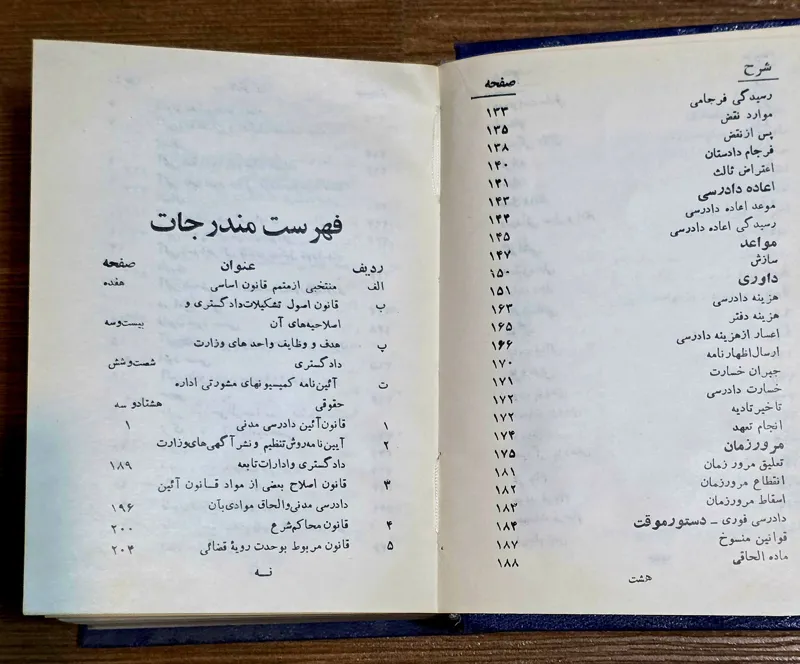 شرح صفحه
رسیدگی فرجامی ۱۳۳
موارد نقض ۱۳۵
پس ازنقض ۱۳۸
فرجام دادستان ۱۴۰
اعتراض ثالث ۱۴۱
اعاده دادرسی ۱۴۳
موعد اعاده دادرسی ۱۴۴
رسیدگی اعاده دادرسی ۱۴۵
مواعد ۱۴۷
سازش ۱۵۰
داوری ۱۵۱
هزینه دادرسی ۱۶۳
هزینه دفتر ۱۶۵
اعسار ازهزینه دادرسی ۱۶۶
ارسال اظهارنامه ۱۷۰
جبران خسارت ۱۷۱
خسارت دادرسی ۱۷۲
تاخیرتادیه ۱۷۲
انجام تعهد ۱۷۴
مرورزمان ۱۷۵
تعلیق مرور زمان ۱۸۱
انقطاع مرورزمان ۱۸۲
اسقاط مرورزمان ۱۸۳
دادرسی فوری - دستورموقت ۱۸۴
قوانین منسوخ ۱۸۷
ماده الحاقی ۱۸۸
هشت
فهرست مندرجات
ردیف عنوان صفحه
الف منتخبی ازمتمم قانون اساسی هفده
ب قانون اصول تشکیلات دادگستری و
اصلاحیه‌های آن بیست‌وسه
پ هدف و وظایف واحد های وزارت
دادگستری شصت‌وشش
ت آئین‌نامه کمیسیونهای مشورتی اداره
حقوقی هشتادو سه
۱ قانون آئین دادرسی مدنی ۱
۲ آیین‌نامه‌روش‌تنظیم و نشر آگهی‌های‌وزارت
دادگستری وادارات‌تابعه ۱۸۹
۳ قانون اصلاح بعضی از مواد قانون آئین
دادرسی مدنی‌والحاق موادی‌بآن ۱۹۶
۴ قانون محاکم‌شرع ۲۰۰
۵ قانون مربوط بوحدت رویهٔ قضائی ۲۰۴
نه